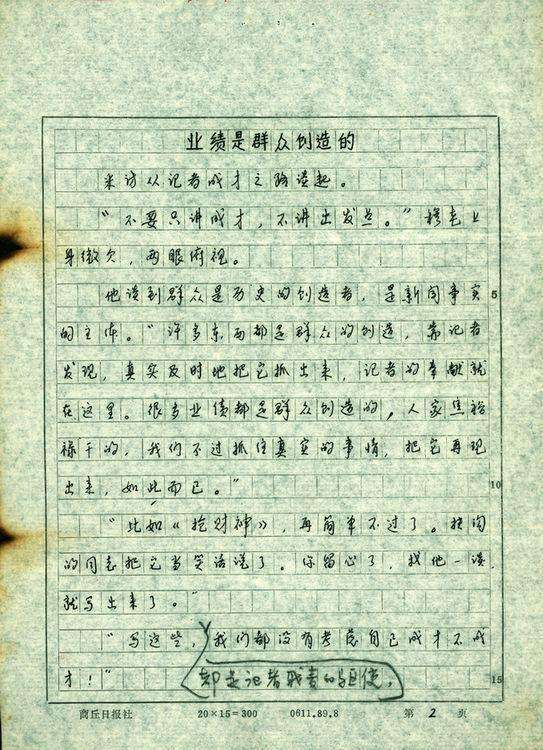 业绩是群众创造的
采访从记者成才之路谈起。
“不要只讲成才，不讲出发点。”穆青上
身微欠，两眼俯视。
他谈到群众是历史的创造者，是新闻事实
5
的主体。“许多东西都是群众的创造，靠记者
发现，真实及时地把它抓出来，记者的奉献就
在这里。很多业绩都是群众创造的，人家焦裕
禄干的，我们不过抓住真实的事情，把它再现
出来，如此而已。”
10
“比如《抢财神》，再简单不过了。
的同志把它当笑话说了。你留心了，找他一谈，
就写出来了。”
“写这些，我们都没有考虑自己成才不成
才！”
都是记者职责的驱使，
15
商丘日报社 20×15=300 0611.89.8 第 2 页